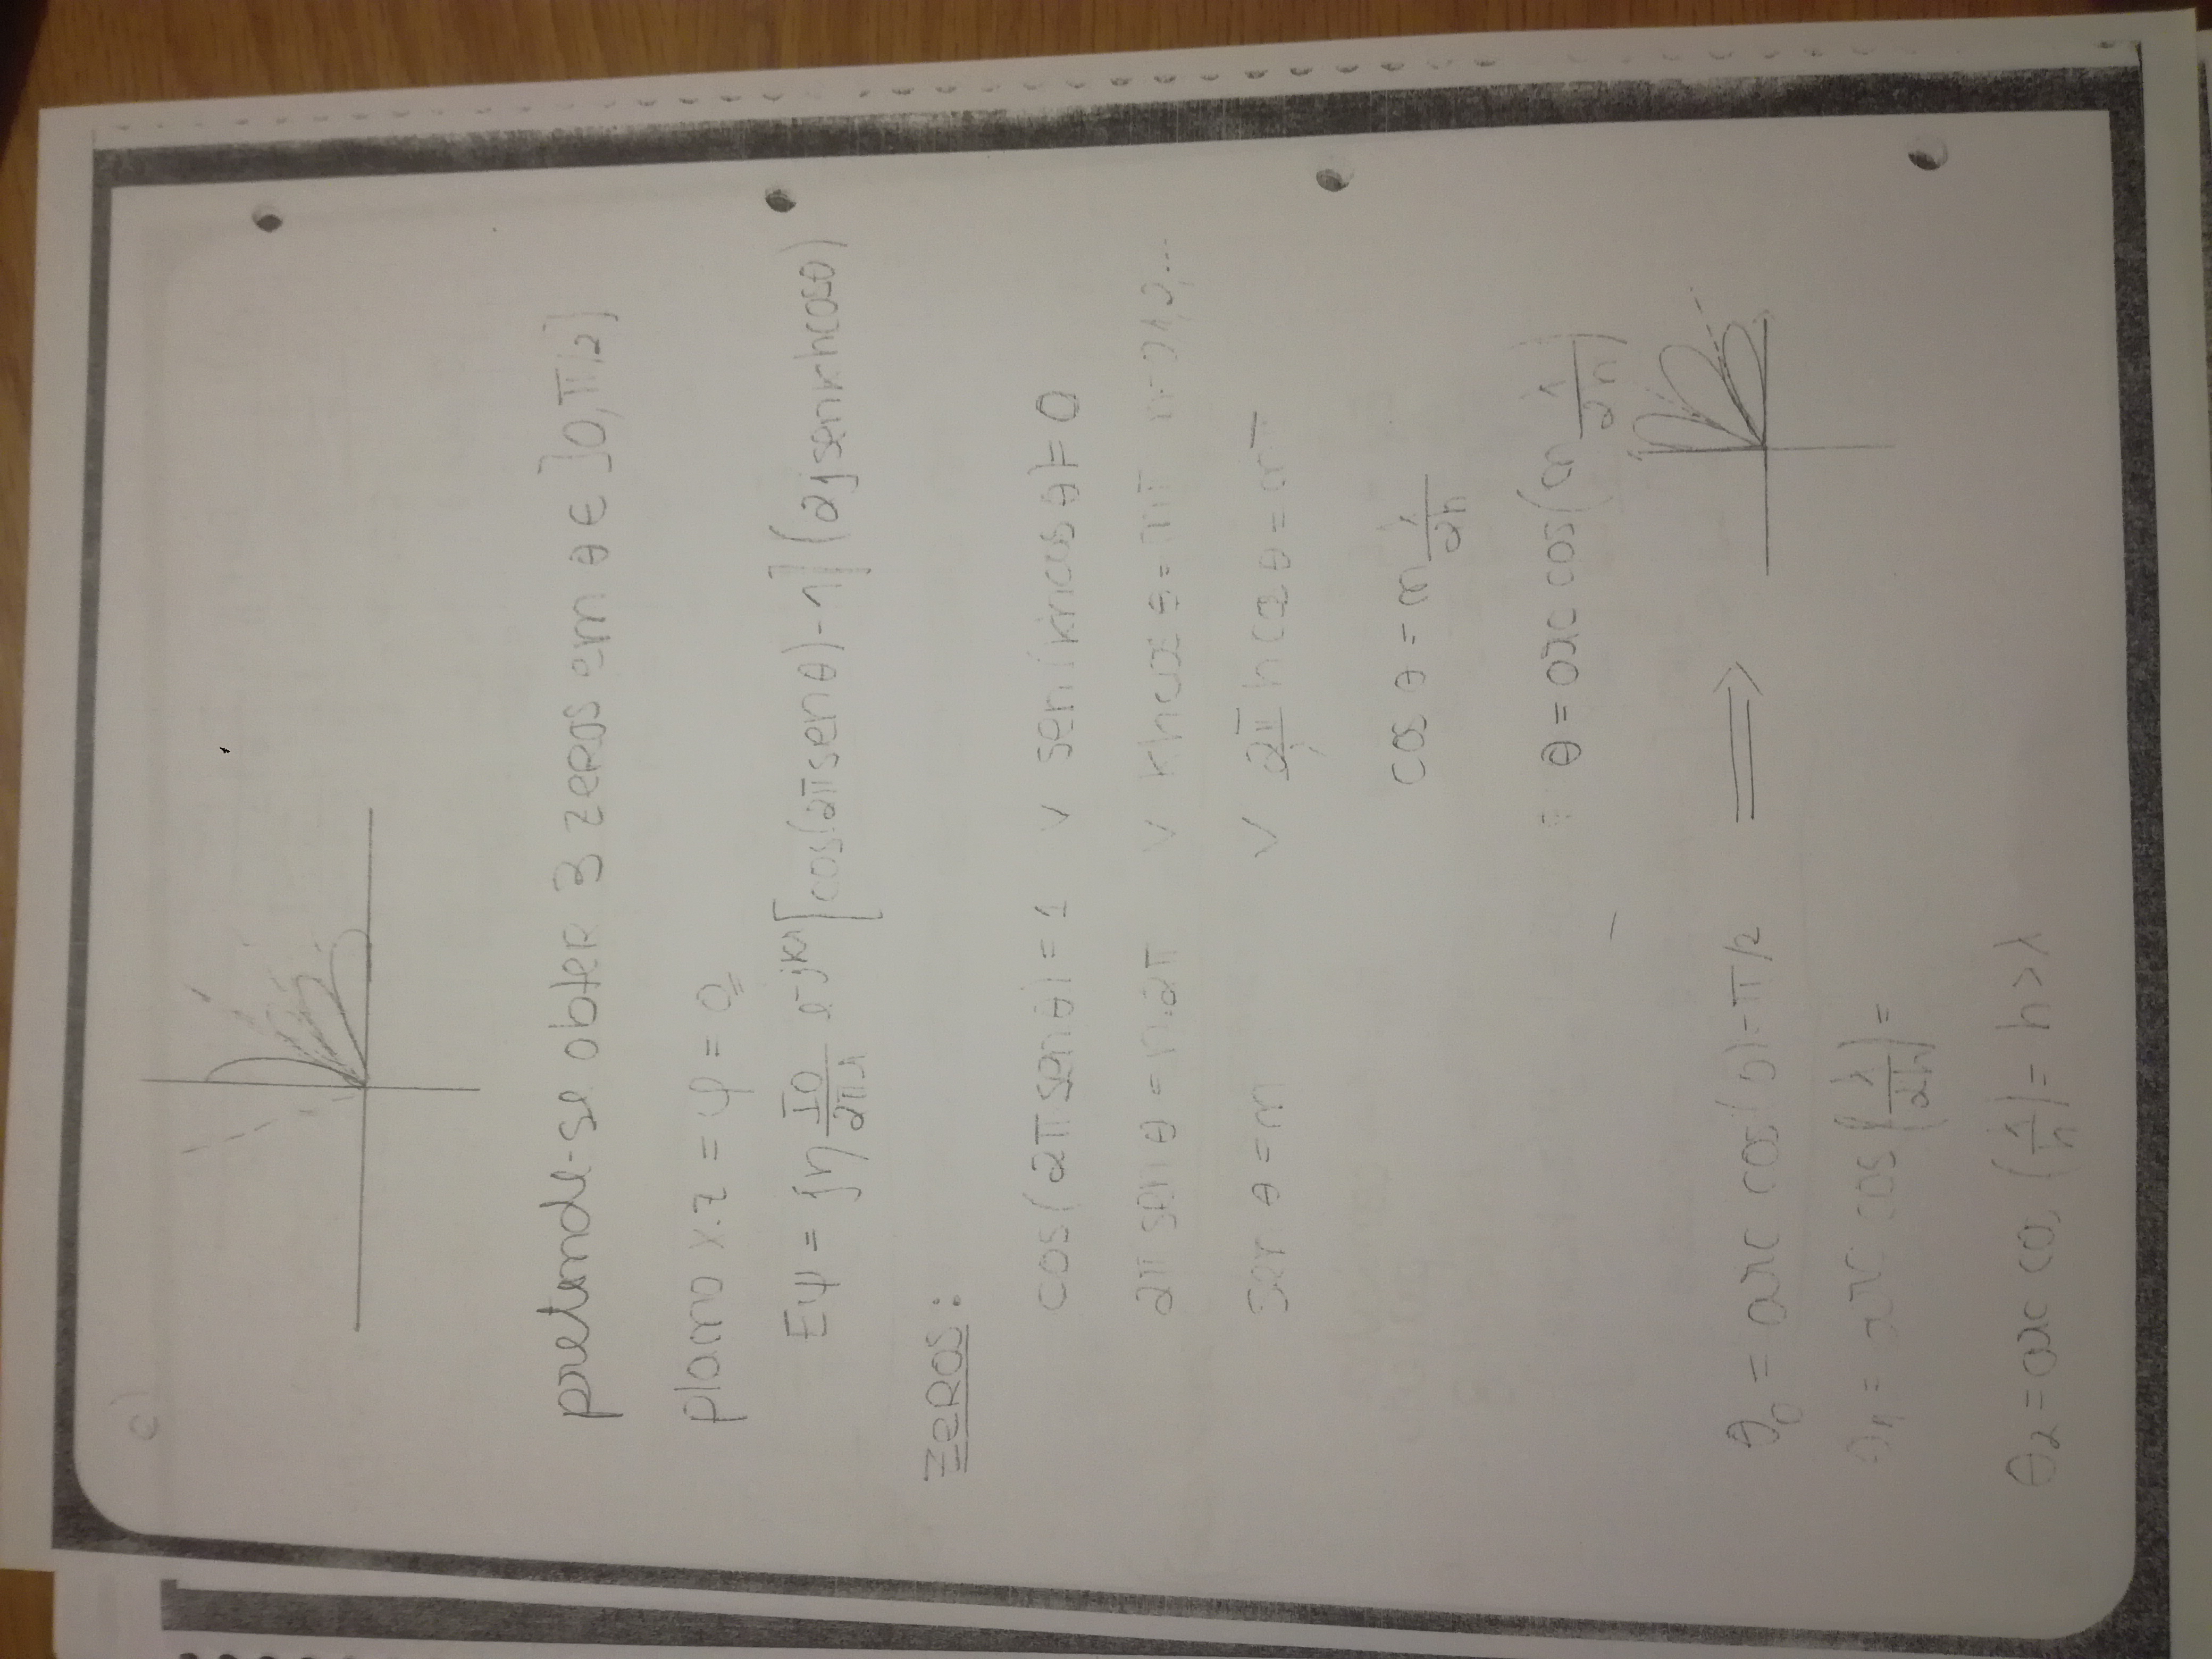 c)
pretende-se obter 3 zeros em θ ∈ ]0, π/2]
plano x.z = φ = 0
Eψ = jη I0/2πr e^-jkr [cos(2π sen θ) - 1] (2j sen kh cos θ)
Zeros:
cos(2π sen θ) = 1 ∨ sen(kh cos θ) = 0
2π sen θ = n.2π ∨ kh cos θ = nπ n=0,1,2,...
sen θ = n ∨ 2π/λ h cos θ = nπ
cos θ = n λ/2h
θ = arc cos(n λ/2h)
θ0 = arc cos(0) = π/2 ⟹
θ1 = arc cos(λ/2h) =
θ2 = arc cos (λ/h) = h > λ